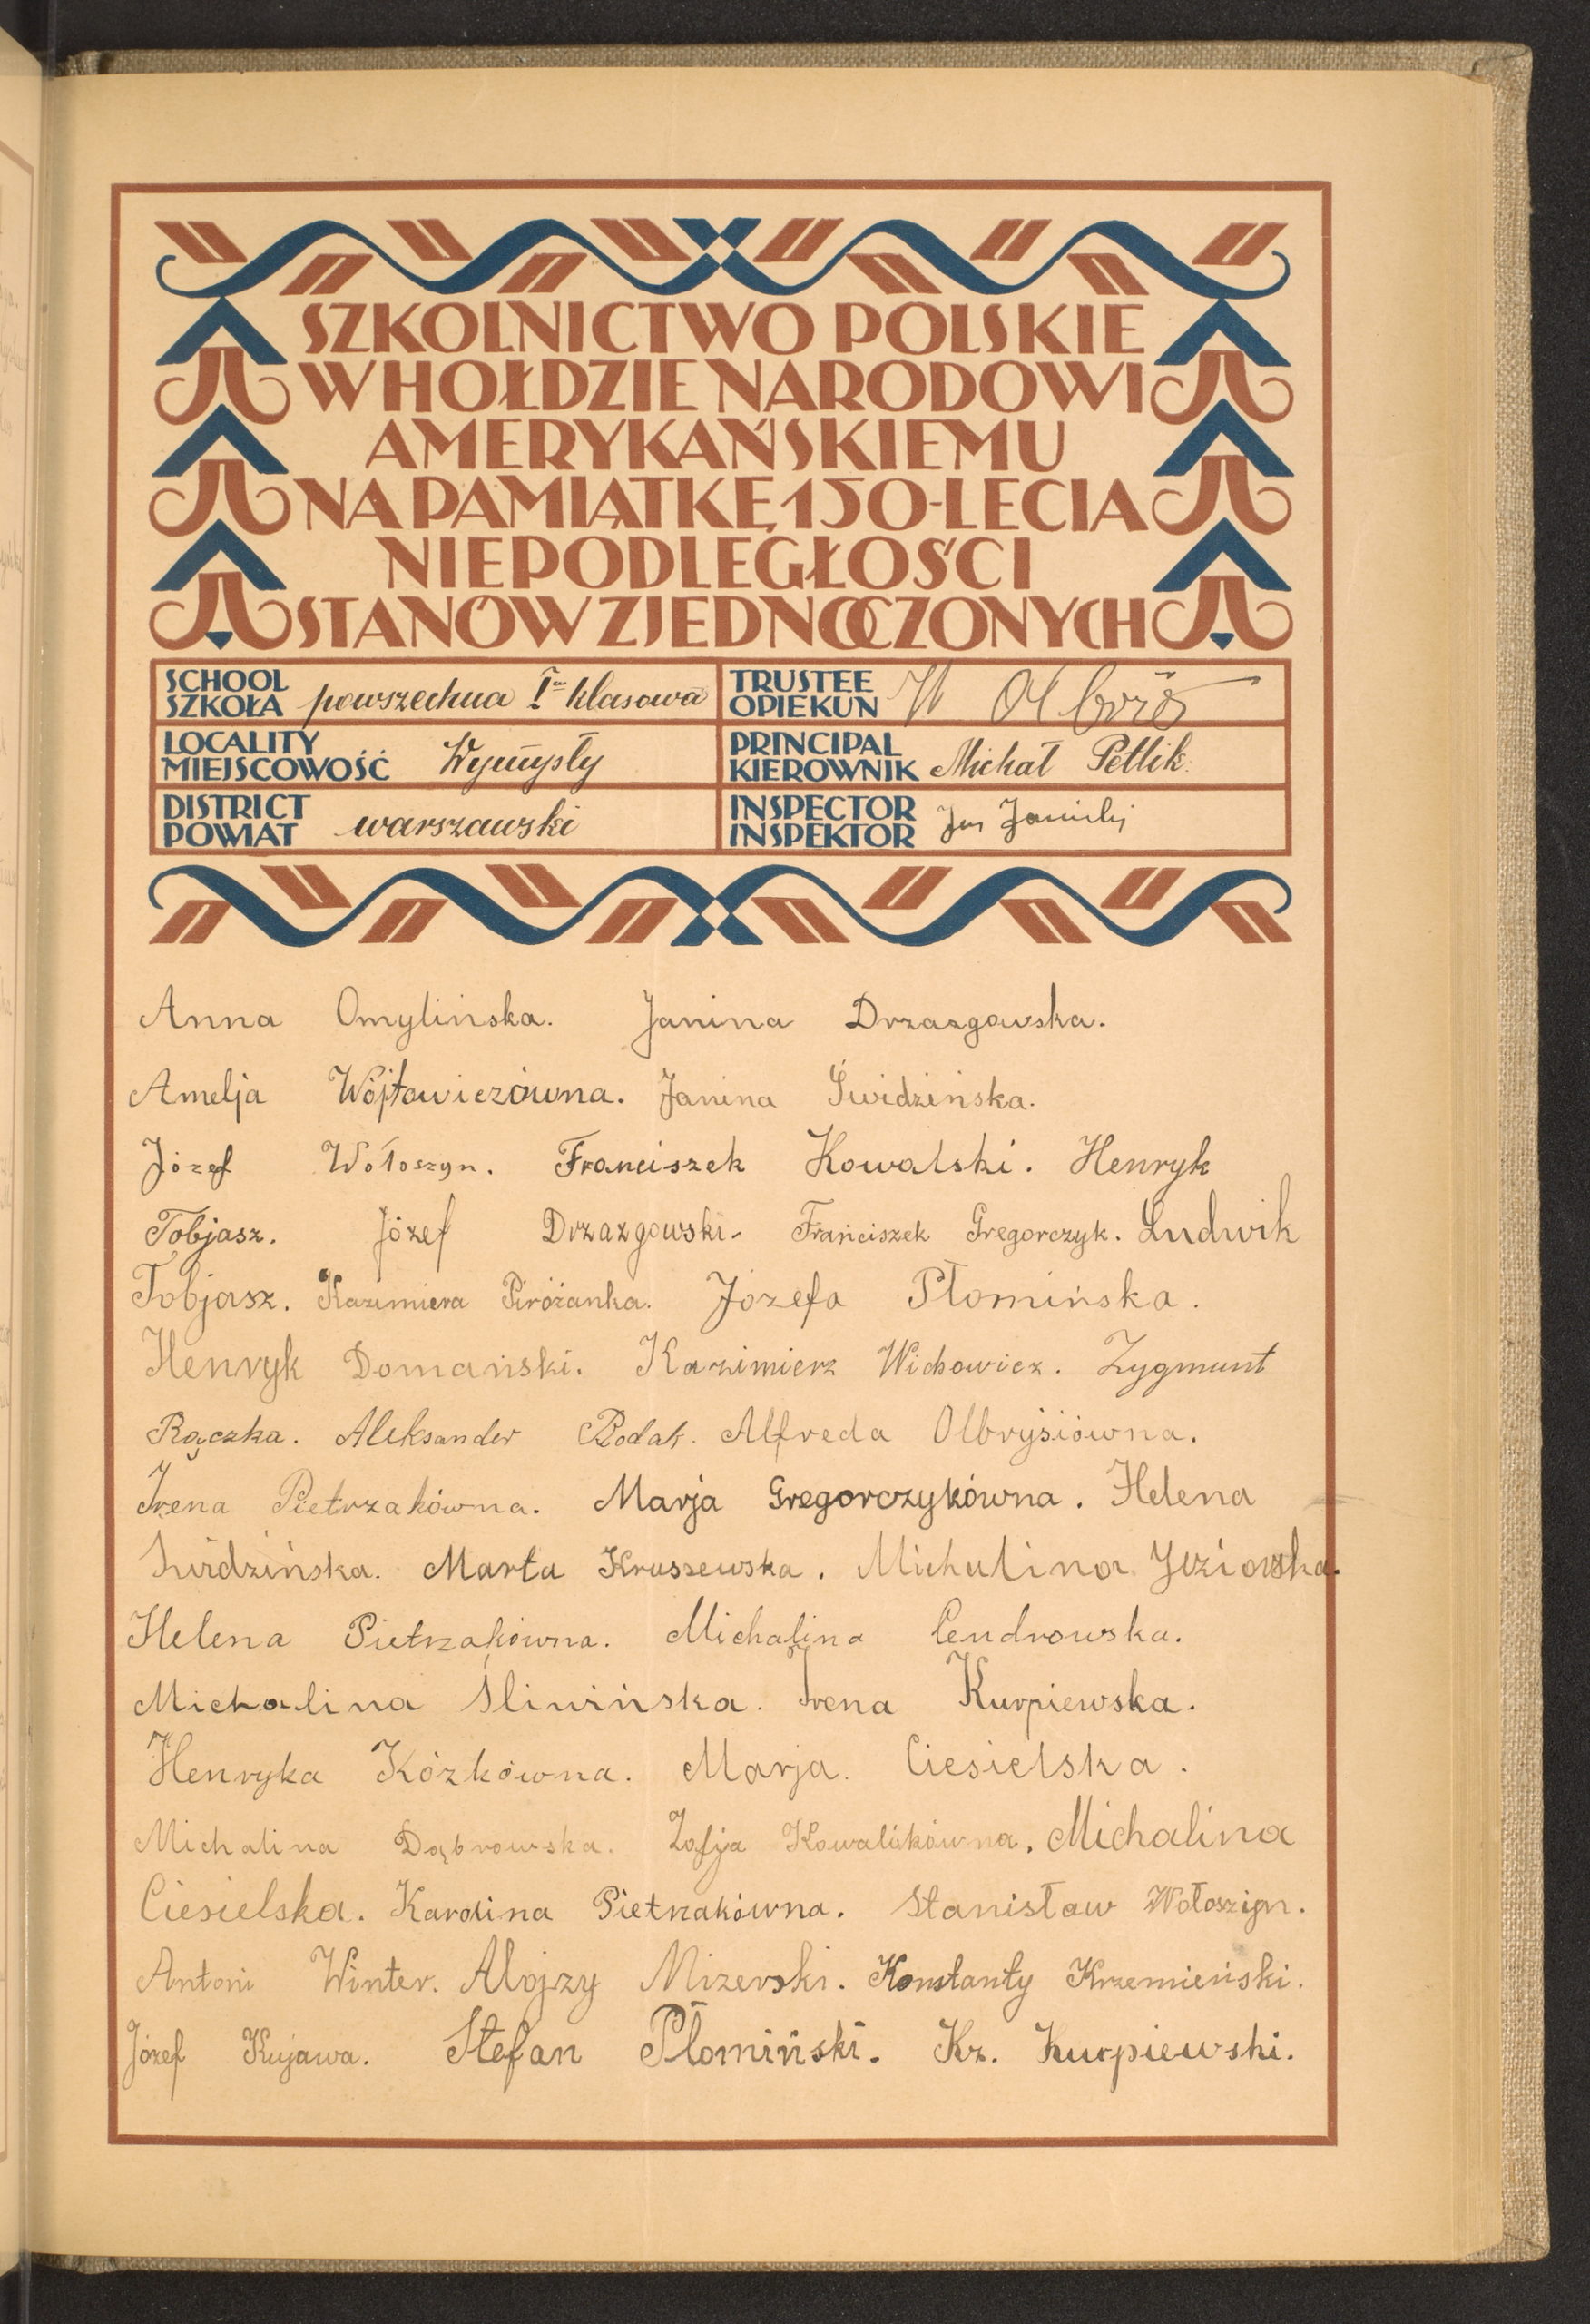 SZKOLNICTWO POLSKIE
W HOŁDZIE NARODOWI
AMERYKAŃSKIEMU
NA PAMIĄTKĘ 150-LECIA
NIEPODLEGŁOŚCI
STANÓW ZJEDNOCZONYCH
SCHOOL
SZKOŁA powszechna I-klasowa
TRUSTEE
OPIEKUN W
LOCALITY
MIEJSCOWOŚĆ Wymysły
PRINCIPAL
KIEROWNIK Michał Petlik.
DISTRICT
POWIAT warszawski
INSPECTOR
INSPEKTOR
Anna Omylińska. Janina Drzazgowska.
Amelja Wójtowiczówna. Janina Świdzińska.
Józef Wołoszyn. Franciszek Kowalski. Henryk
Tobjasz. Józef Drzazgowski. Franciszek Gregorczyk. Ludwik
Tobjasz. Kazimiera Piróżanka. Józefa Płomińska.
Henryk Domański. Kazimierz Wichowicz. Zygmunt
Rączka. Aleksander Rodak. Alfreda Olbryśiówna.
Irena Pietrzakówna. Marja Gregorczykówna. Helena
Świdzińska. Marta Kruszewska. Michalina
Helena Pietrzakówna. Michalina Cendrowska.
Michalina Śliwińska. Irena Kurpiewska.
Henryka Kózkówna. Marja. Ciesielska.
Michalina Dąbrowska. Zofja Kowalikówna. Michalina
Ciesielska. Karolina Pietrzakówna. Stanisław Wołoszyn.
Antoni Winter. Alojzy Mizerski. Konstanty Krzemieński.
Józef Kujawa. Stefan Płomiński. Kz. Kurpiewski.